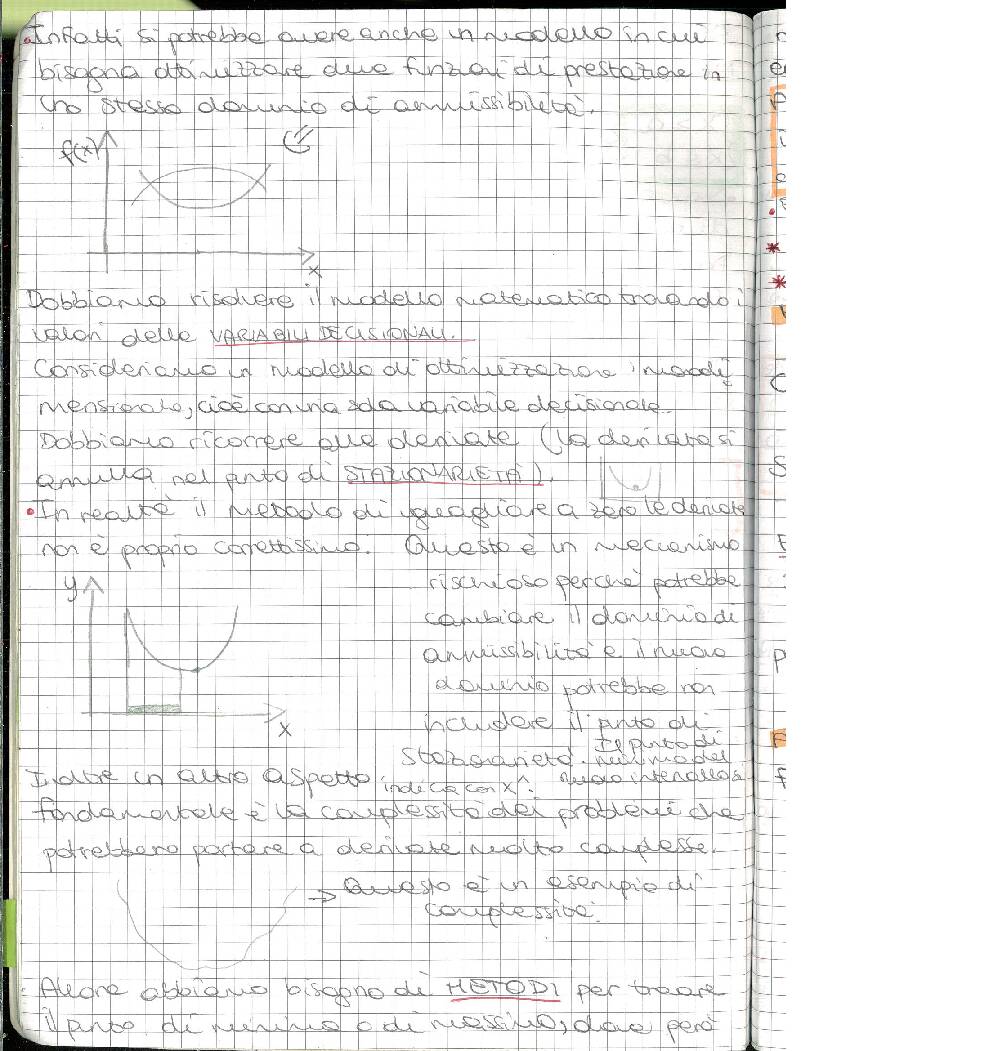 Infatti si potrebbe avere anche un modello in cui
bisogna ottimizzare due funzioni di prestazione in
uno stesso dominio di ammissibilità.
f(x)
x
Dobbiamo risolvere il modello matematico trovando i
valori delle VARIABILI DECISIONALI.
Consideriamo un modello di ottimizzazione monodi
mensionale, cioè con una sola variabile decisionale.
Dobbiamo ricorrere alle derivate (la derivata si
annulla nel punto di STAZIONARIETÀ).
In realtà il metodo di uguagliare a zero le derivate
non è proprio correttissimo. Questo è un meccanismo
rischioso perché potrebbe
cambiare il dominio di
ammissibilità e il nuovo
dominio potrebbe non
includere il punto di
stazionarietà. Il punto di
minimo del
nuovo intervallo si
indica con x^.
y
x
Inoltre un altro aspetto
fondamentale è la complessità dei problemi che
potrebbero portare a derivate molto complesse.
→ Questo è un esempio di
complessità.
Allora abbiamo bisogno di METODI per trovare
il punto di minimo o di massimo, dove però